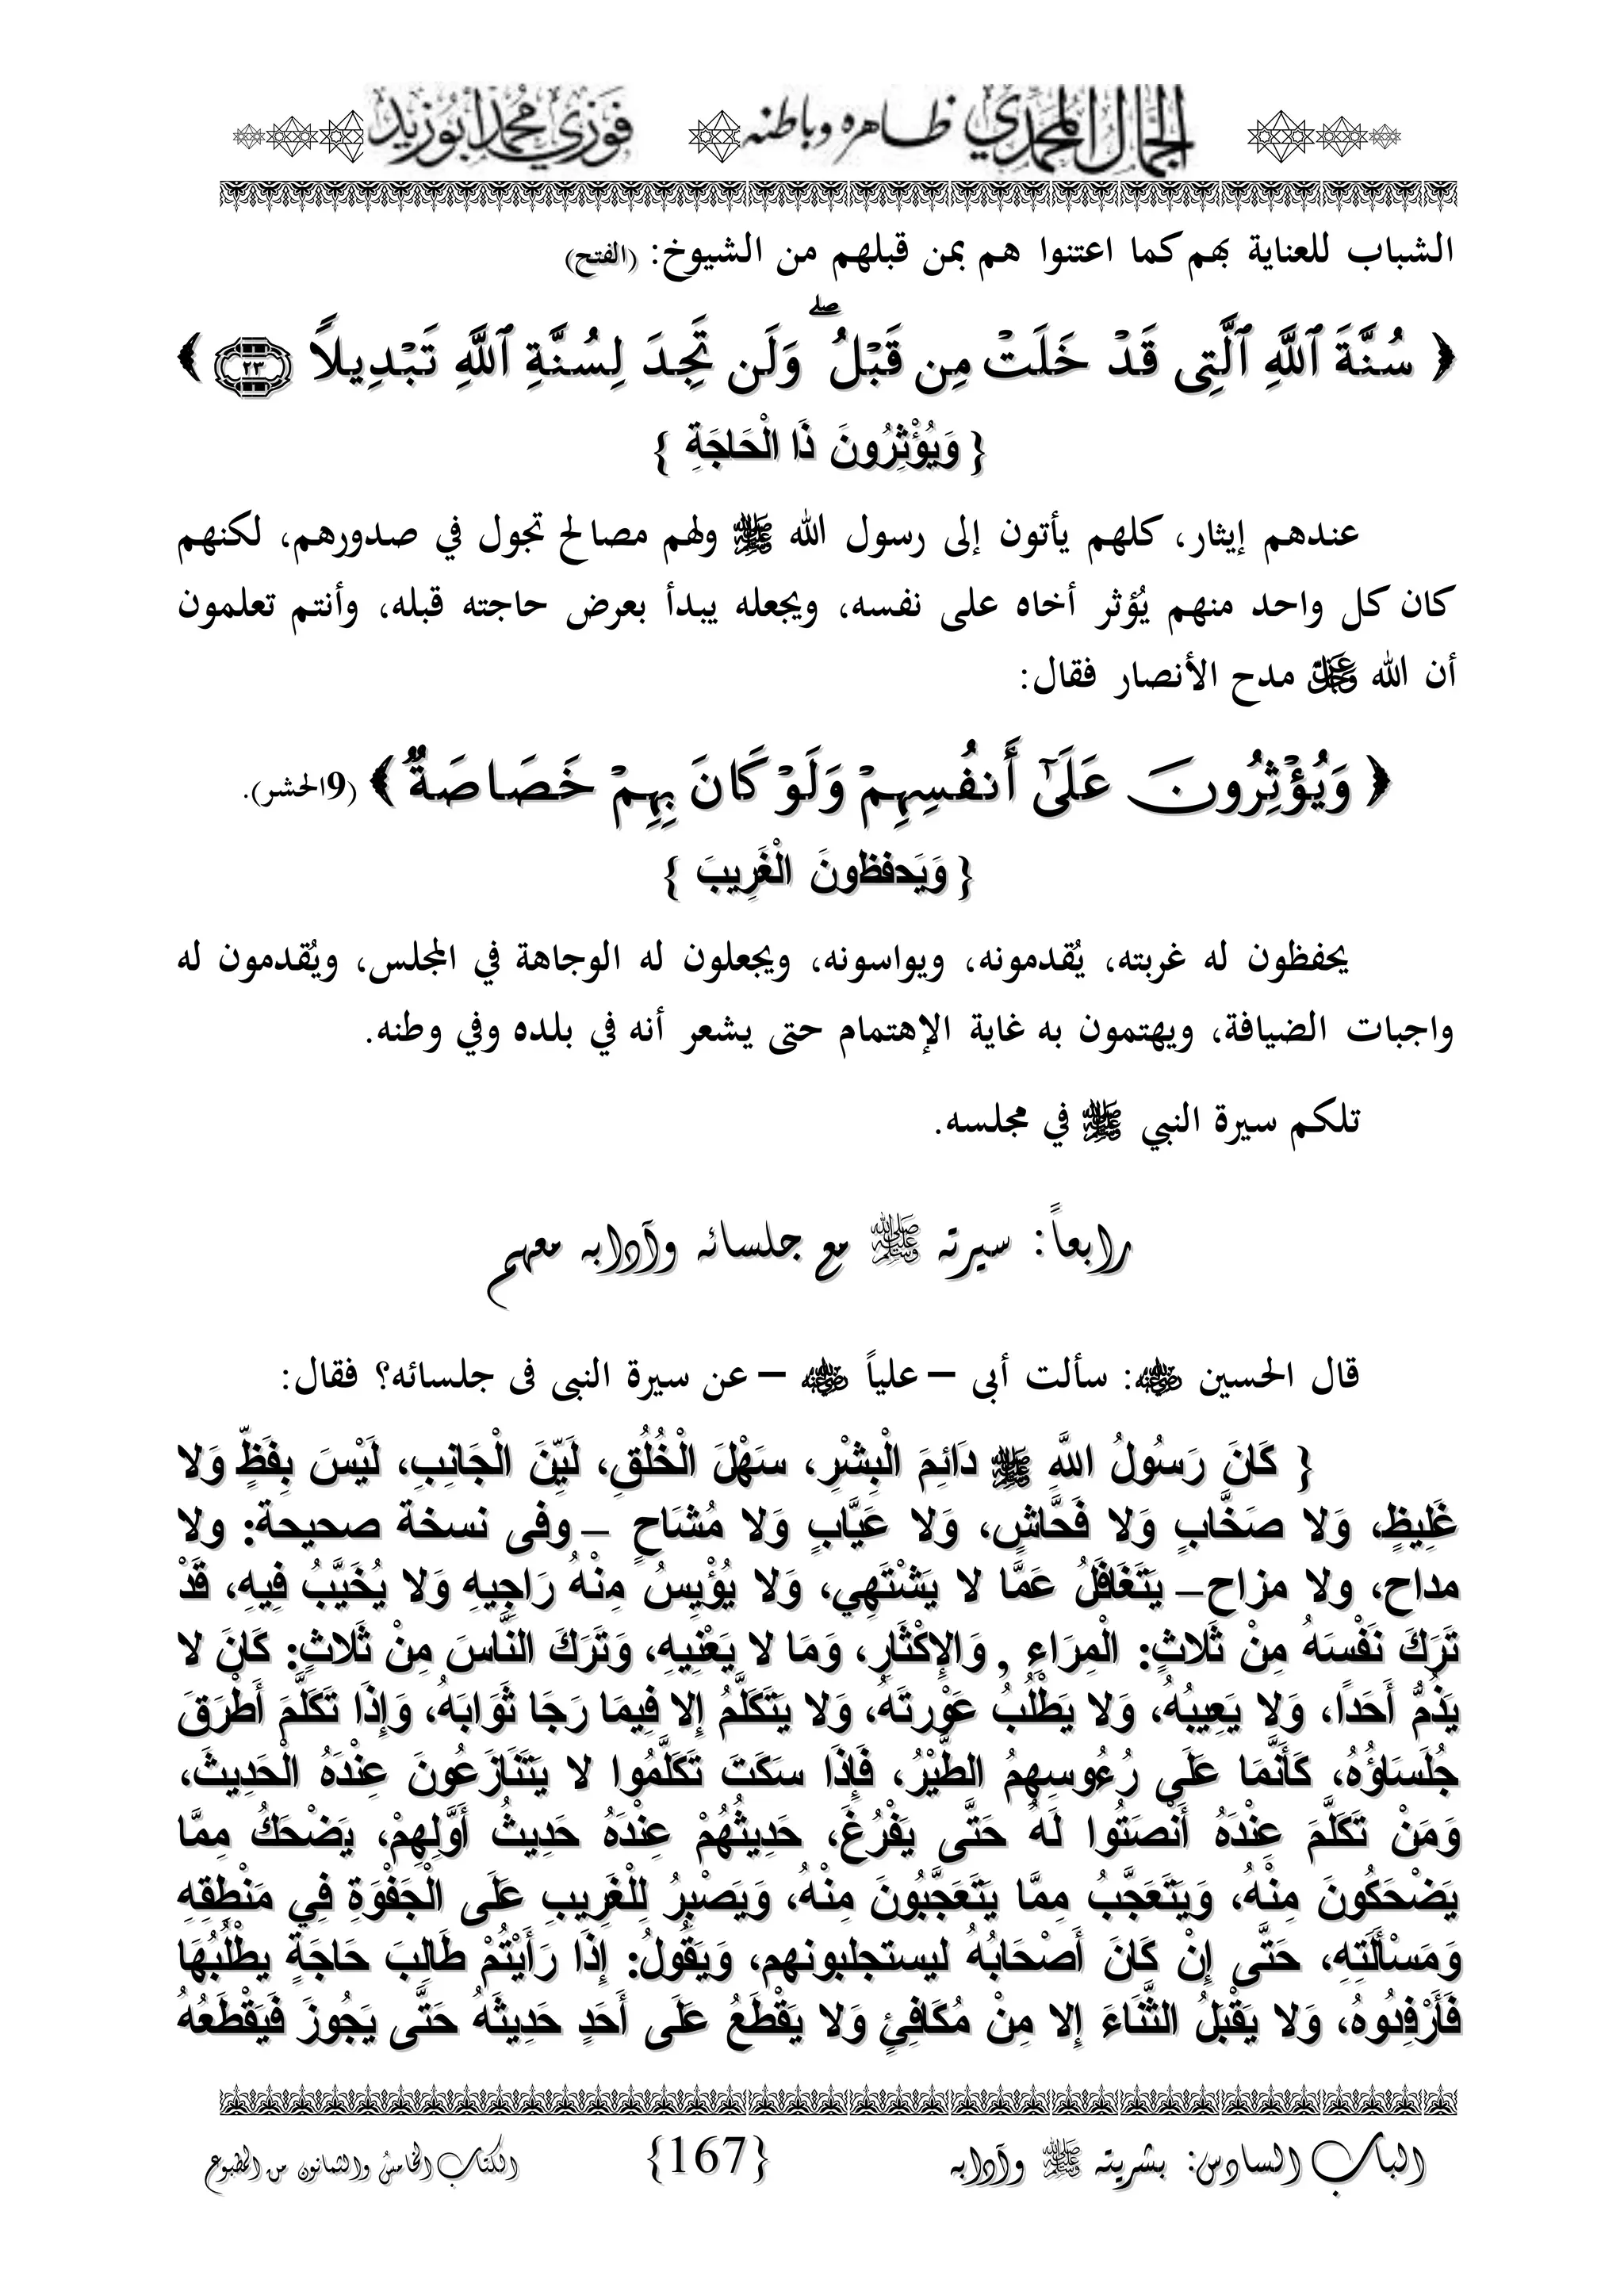 الجمال المحمدي ظاهره وباطنه فوزي محمد أبوزيد
الشباب للعناية بهم كما اعتنوا هم بمن قبلهم من الشيوخ: (الفتح)
﴿ سُنَّةَ ٱللَّهِ ٱلَّتِى قَدْ خَلَتْ مِن قَبْلُ ۖ وَلَن تَجِدَ لِسُنَّةِ ٱللَّهِ تَبْدِيلاً ٢٣ ﴾
{ وَيُؤْثِرُونَ ذَا الْحَاجَةِ }
عندهم إيثار، كلهم يأتون إلى رسول الله ﷺ ولهم مصالح تجول في صدورهم، لكنهم
كان كل واحد منهم يُؤثر أخاه على نفسه، ويجعله يبدأ بعرض حاجته قبله، وأنتم تعلمون
أن الله عز وجل مدح الأنصار فقال:
﴿ وَيُؤْثِرُونَ عَلَىٰٓ أَنفُسِهِمْ وَلَوْ كَانَ بِهِمْ خَصَاصَةٌ ﴾ (9الحشر).
{ وَيَحفظونَ الْغَرِيبَ }
يحفظون له غربته، يُقدمونه، ويواسونه، ويجعلون له الوجاهة في المجلس، ويُقدمون له
واجبات الضيافة، ويهتمون به غاية الإهتمام حتى يشعر أنه في بلده وفي وطنه.
تلكم سيرة النبي ﷺ في مجلسه.
رابعاً: سيرته ﷺ مع جلسائه وآدابه معهم
قال الحسين رضي الله عنه: سألت أبى – علياً رضي الله عنه – عن سيرة النبى فى جلسائه؟ فقال:
{ كَانَ رَسُولُ اللَّهِ ﷺ دَائِمَ الْبِشْرِ، سَهْلَ الْخُلُقِ، لَيِّنَ الْجَانِبِ، لَيْسَ بِفَظٍّ وَلا
غَلِيظٍ، وَلا صَخَّابٍ وَلا فَحَّاشٍ، وَلا عَيَّابٍ وَلا مُشَاحٍ – وفى نسخة صحيحة: ولا
مداح، ولا مزاح– يَتَغَافَلُ عَمَّا لا يَشْتَهِي، وَلا يُؤْيِسُ مِنْهُ رَاجِيهِ وَلا يُخَيَّبُ فِيهِ، قَدْ
تَرَكَ نَفْسَهُ مِنْ ثَلاثٍ: الْمِرَاءِ , وَالإِكْثَارِ، وَمَا لا يَعْنِيهِ، وَتَرَكَ النَّاسَ مِنْ ثَلاثٍ: كَانَ لا
يَذُمُّ أَحَدًا، وَلا يَعِيبُهُ، وَلا يَطْلُبُ عَوْرتَهُ، وَلا يَتَكَلَّمُ إِلا فِيمَا رَجَا ثَوَابَهُ، وَإِذَا تَكَلَّمَ أَطْرَقَ
جُلَسَاؤُهُ، كَأَنَّمَا عَلَى رُءُوسِهِمُ الطَّيْرُ، فَإِذَا سَكَتَ تَكَلَّمُوا لا يَتَنَازَعُونَ عِنْدَهُ الْحَدِيثَ،
وَمَنْ تَكَلَّمَ عِنْدَهُ أَنْصَتُوا لَهُ حَتَّى يَفْرُغَ، حَدِيثُهُمْ عِنْدَهُ حَدِيثُ أَوَّلِهِمْ، يَضْحَكُ مِمَّا
يَضْحَكُونَ مِنْهُ، وَيَتَعَجَّبُ مِمَّا يَتَعَجَّبُونَ مِنْهُ، وَيَصْبِرُ لِلْغَرِيبِ عَلَى الْجَفْوَةِ فِي مَنْطِقِهِ
وَمَسْأَلَتِهِ، حَتَّى إِنْ كَانَ أَصْحَابُهُ ليستجلبونهم، وَيَقُولُ: إِذَا رَأَيْتُمْ طَالِبَ حَاجَةٍ يطْلُبُهَا
فَأَرْفِدُوهُ، وَلا يَقْبَلُ الثَّنَاءَ إِلا مِنْ مُكَافِئٍ وَلا يَقْطَعُ عَلَى أَحَدٍ حَدِيثَهُ حَتَّى يَجُوزَ فَيَقْطَعُهُ
الباب السادس: بشريته ﷺ وآدابه {167} الكتاب الخامس والثمانون من المطبوع